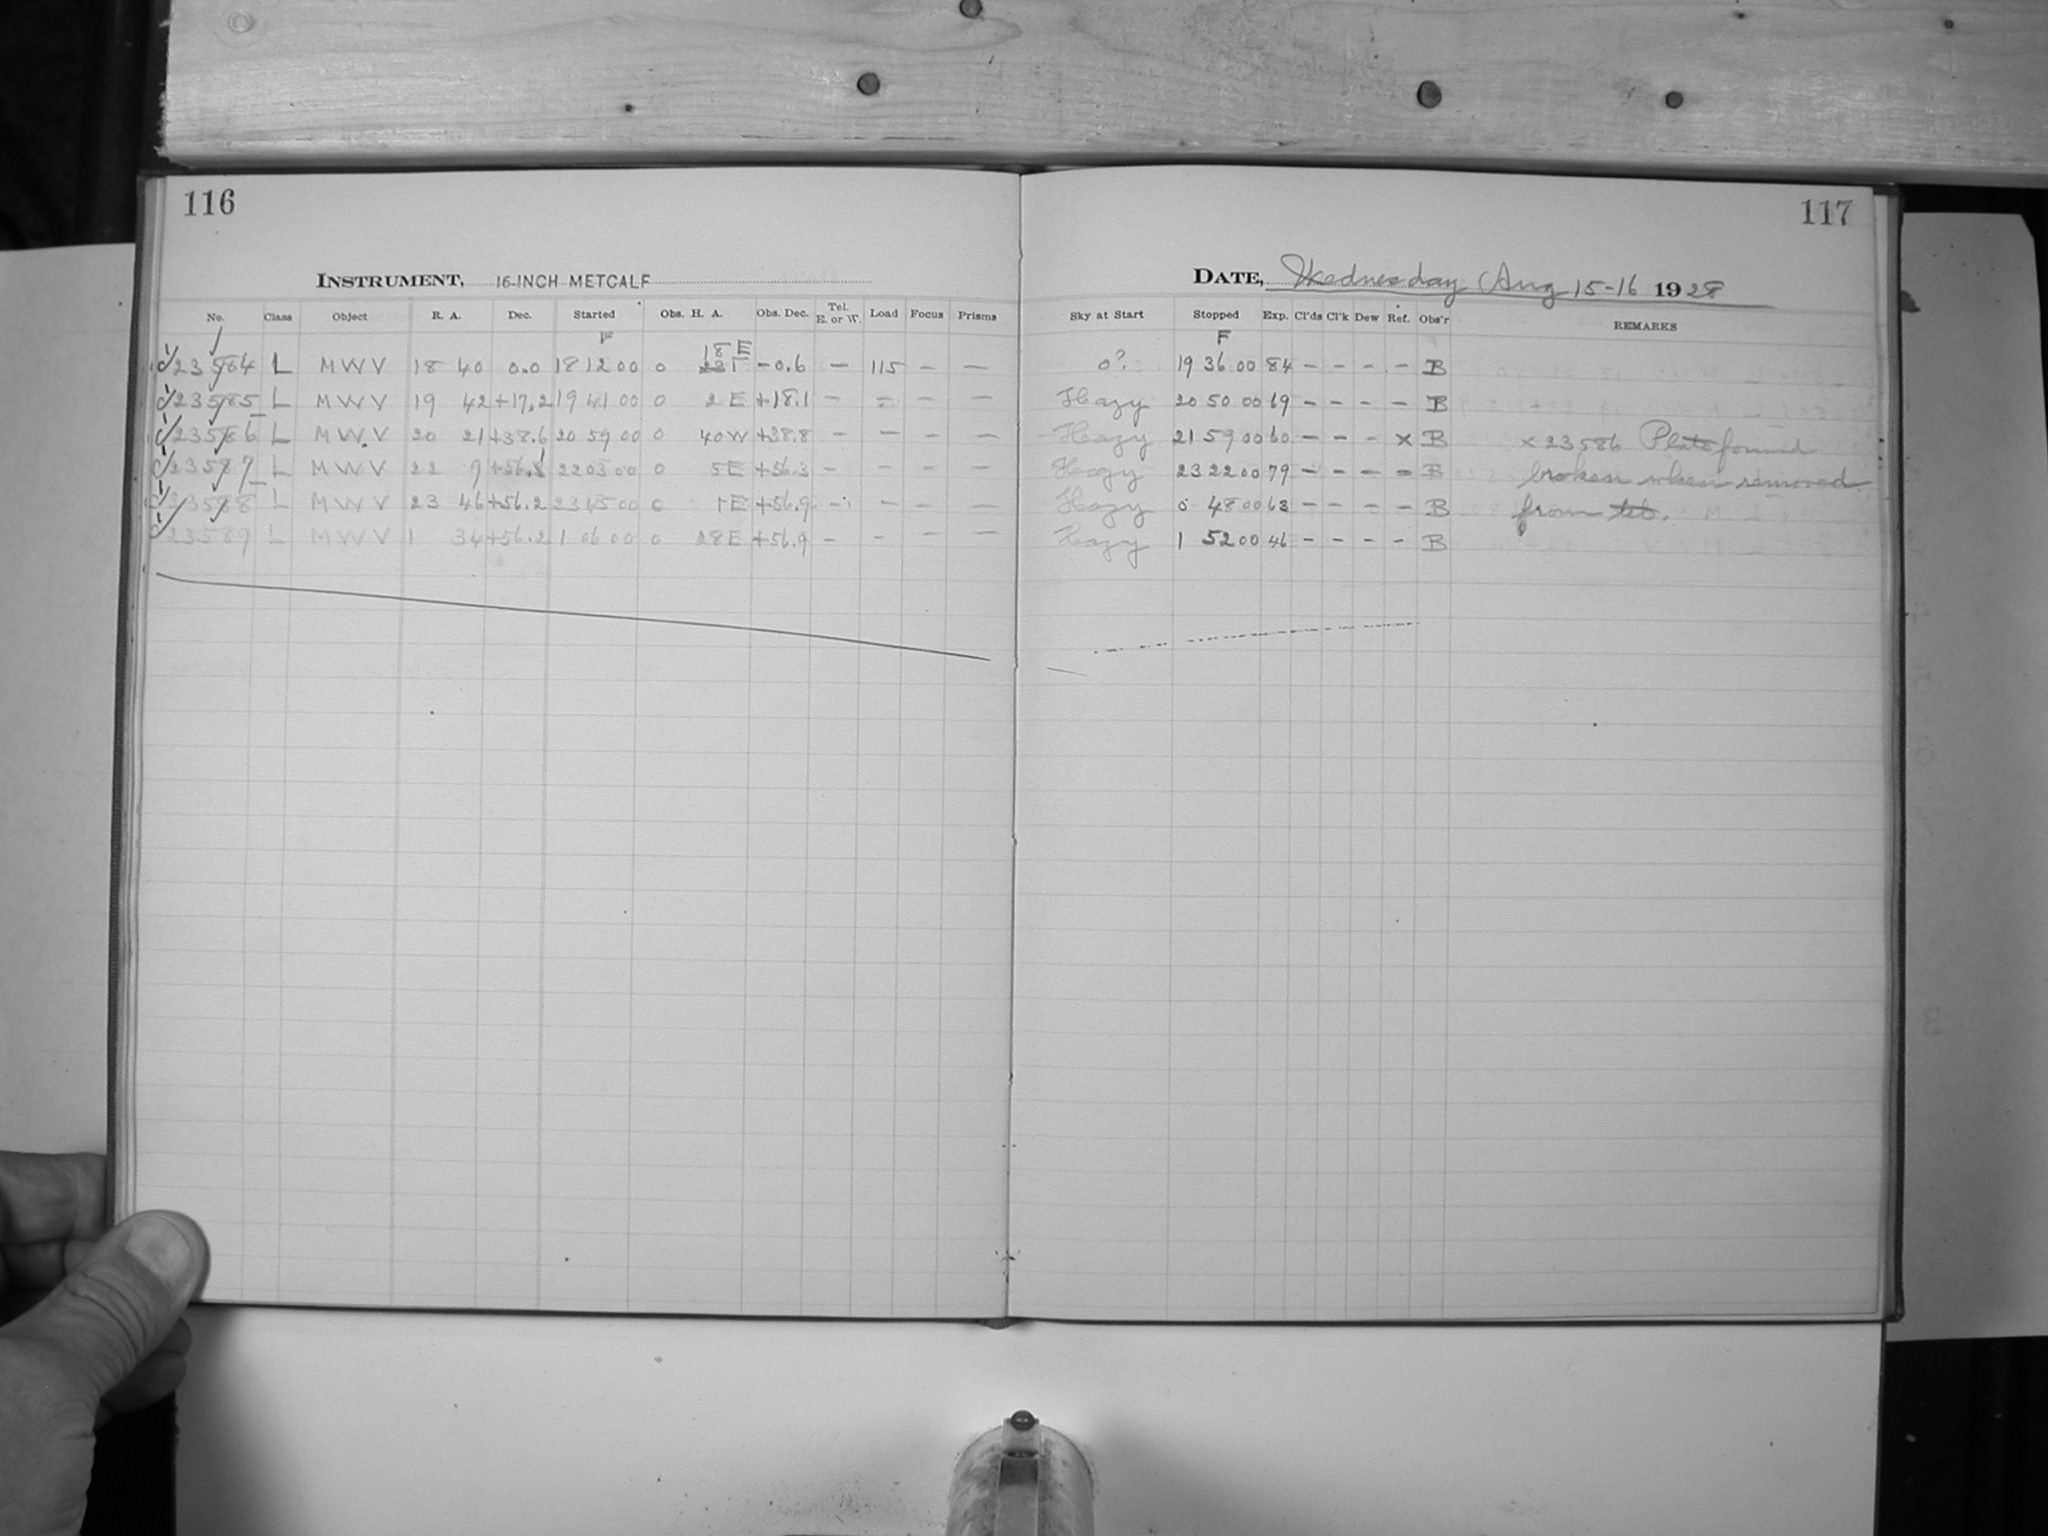 116
117
INSTRUMENT, 16-INCH METCALF
DATE, Wednesday Aug 15-16 1928
No. Class Object R. A. Dec. Started Obs. H. A. Obs. Dec. Tel. E. or W. Load Focus Prisms Sky at Start Stopped Exp. Cl'ds Cl'k Dew Ref. Obs'r REMARKS
F 18 E F
23584 L MWV 18 40 0.0 18 12 00 0 -0.6 — 115 — — 0? 19 36 00 84 - - - - B
23585 L MWV 19 42 +17.2 19 41 00 0 2 E +18.1 - - - - Hazy 20 50 00 69 - - - - B
23586 L MWV 20 21 +38.6 20 59 00 0 40 W +38.8 - - - - Hazy 21 59 00 60 - - - x B x 23586 Plate found
23587 L MWV 22 9 +56. 22 03 00 0 5 E +56.3 - - - - Hazy 23 22 00 79 - - - - B broken when removed
23588 L MWV 23 46 +56.2 23 45 00 0 1 E +56.9 - - - - Hazy 0 48 00 63 - - - - B from
23589 L MWV 1 34 +56.2 1 06 00 0 28 E +56.9 - - - - Hazy 1 52 00 46 - - - - B